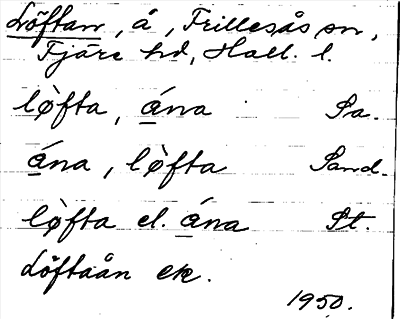 Löftan, å, Frillesås sn,
Fjäre hd, Hall. l.
lø̀fta, ána Sa.
ána, lø̀fta Sand.
lø̀fta el. ána St.
Löftaån ek.
1950.